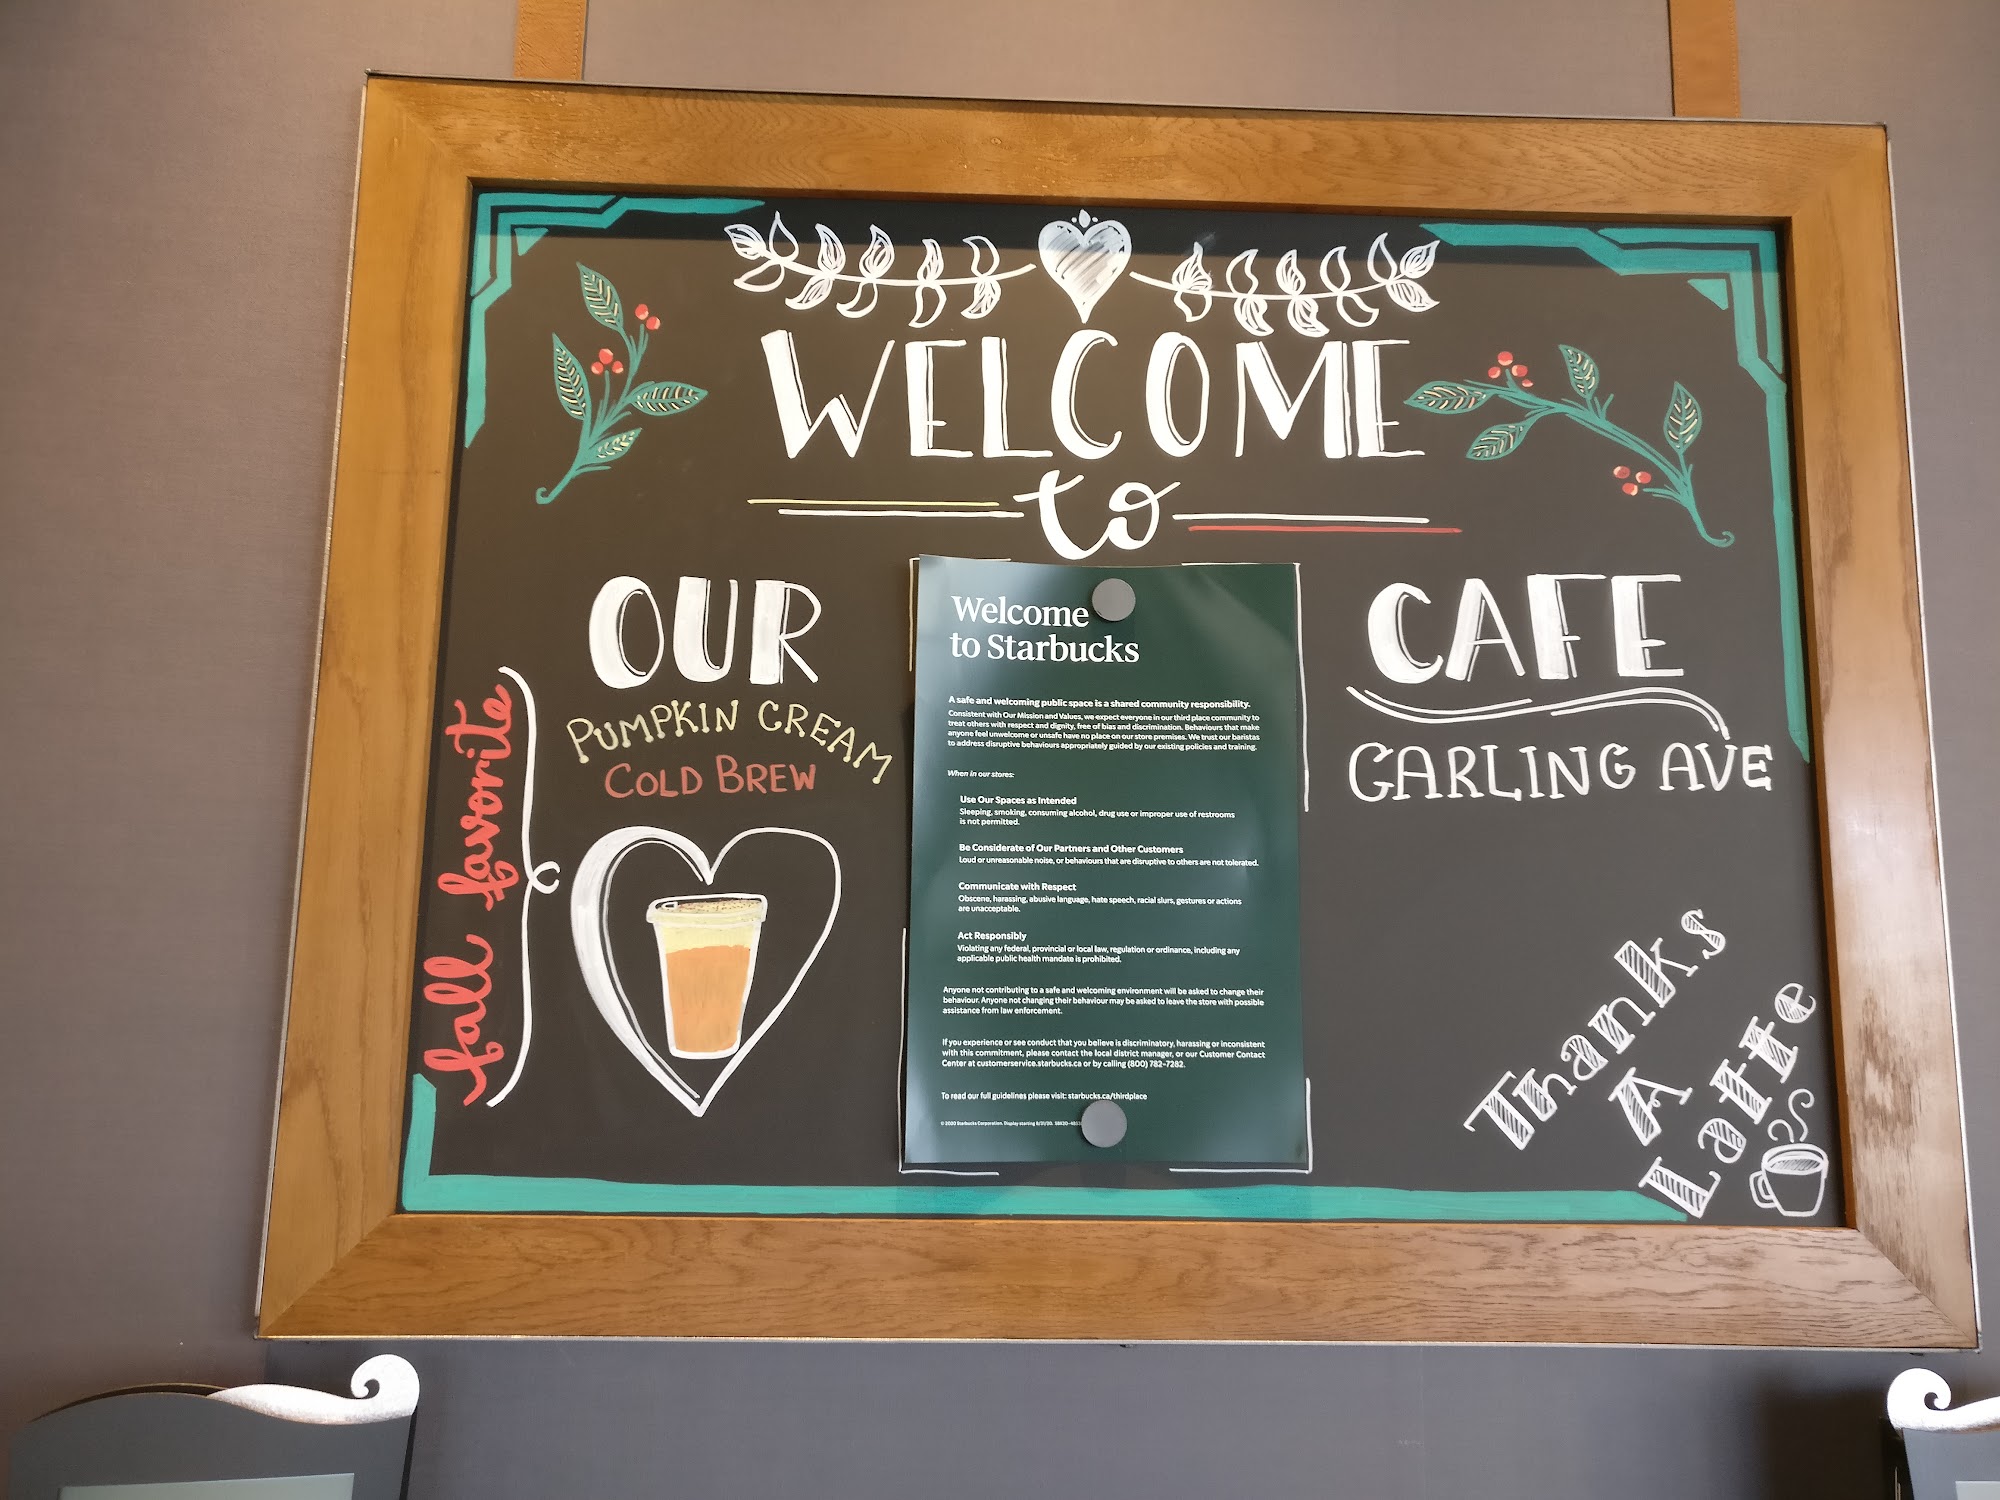 WELCOME
to
OUR
CAFE
PUMPKIN CREAM
COLD BREW
fall favorite
GARLING AVE
Thanks
A
Latte
Welcome
to Starbucks
A safe and welcoming public space is a shared community responsibility.
Consistent with Our Mission and Values, we expect everyone in our third place community to
treat others with respect and dignity, free of bias and discrimination. Behaviours that make
anyone feel unwelcome or unsafe have no place on our store premises. We trust our baristas
to address disruptive behaviours appropriately guided by our existing policies and training.
When in our stores:
Use Our Spaces as Intended
Sleeping, smoking, consuming alcohol, drug use or improper use of restrooms
is not permitted.
Be Considerate of Our Partners and Other Customers
Loud or unreasonable noise, or behaviours that are disruptive to others are not tolerated.
Communicate with Respect
Obscene, harassing, abusive language, hate speech, racial slurs, gestures or actions
are unacceptable.
Act Responsibly
Violating any federal, provincial or local law, regulation or ordinance, including any
applicable public health mandate is prohibited.
Anyone not contributing to a safe and welcoming environment will be asked to change their
behaviour. Anyone not changing their behaviour may be asked to leave the store with possible
assistance from law enforcement.
If you experience or see conduct that you believe is discriminatory, harassing or inconsistent
with this commitment, please contact the local district manager, or our Customer Contact
Center at customerservice.starbucks.ca or by calling (800) 782-7282.
To read our full guidelines please visit: starbucks.ca/thirdplace
© 2020 Starbucks Corporation. Display starting 8/31/20.